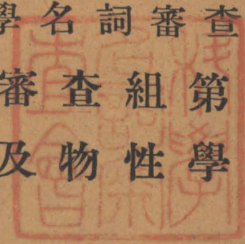 學名詞審查
審查組第
及物性學
學
查會